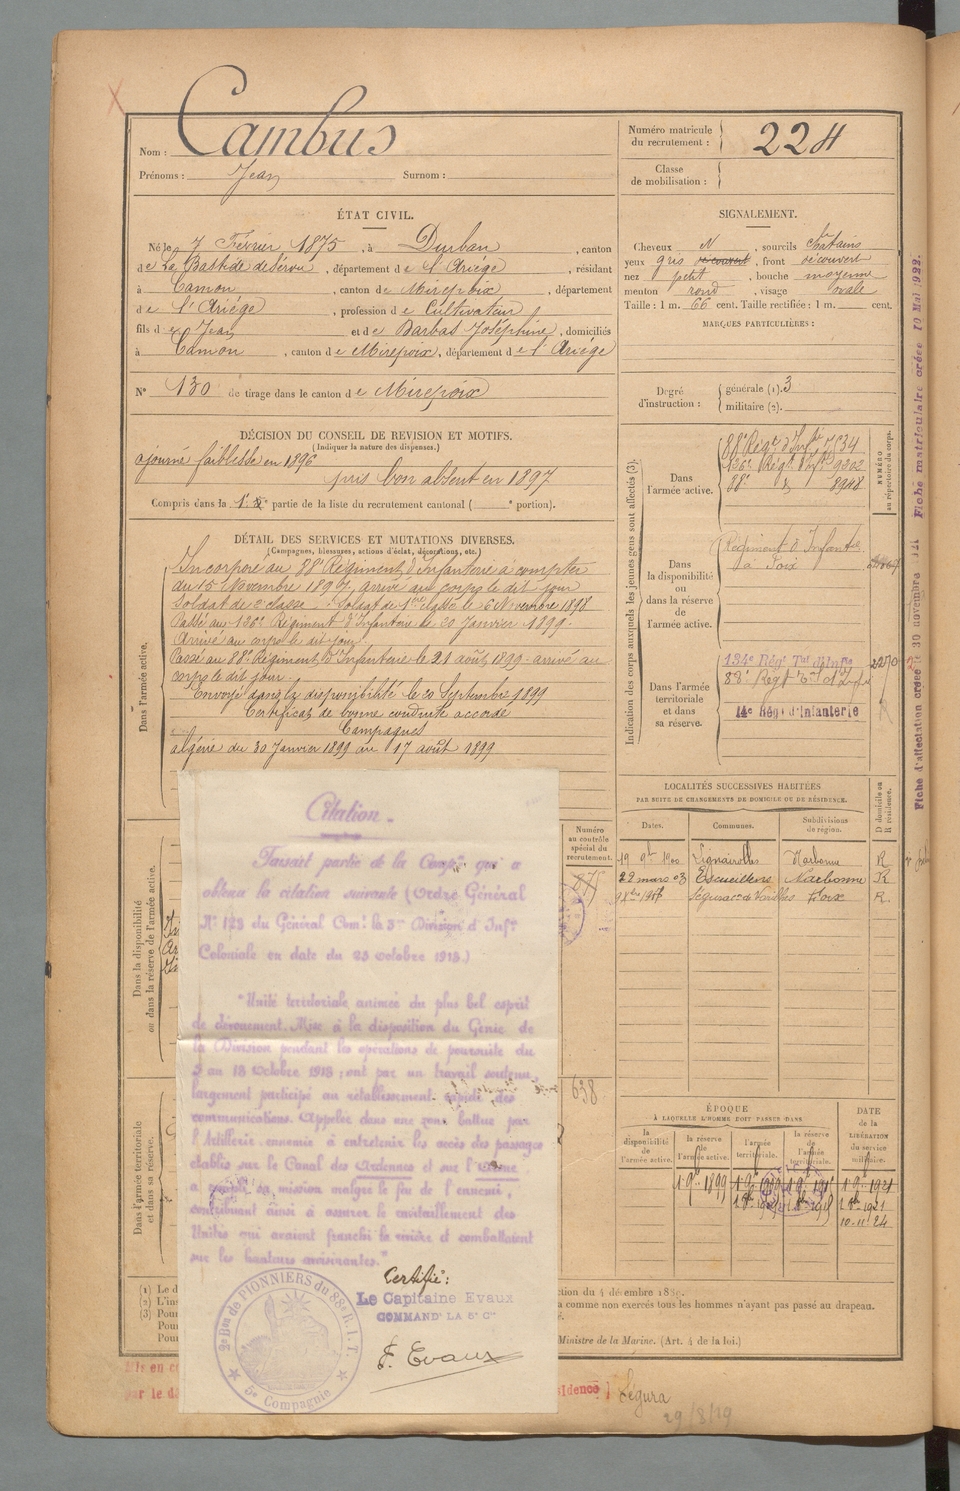 Nom : Cambus
Prénoms : Jean Surnom :
Numéro matricule du recrutement : 224
Classe de mobilisation :
ÉTAT CIVIL.
Né le 7 Février 1875, à Durban, canton
de La Bastide de Sérou, département de l'Ariége, résidant
à Camon, canton de Mirepoix, département
de l'Ariége, profession de Cultivateur
fils de Jean et de Barbas Joséphine, domiciliés
à Camon, canton de Mirepoix, département de l'Ariége
N° 130 de tirage dans le canton de Mirepoix
SIGNALEMENT.
Cheveux N, sourcils chatains
yeux gris découvert, front découvert
nez petit, bouche moyenne
menton rond, visage ovale
Taille : 1 m. 66 cent. Taille rectifiée : 1 m. cent.
MARQUES PARTICULIÈRES :
Degré d'instruction :
générale (1). 3
militaire (2).
DÉCISION DU CONSEIL DE REVISION ET MOTIFS.
(Indiquer la nature des dispenses.)
ajourné faiblesse en 1896
pris bon absent en 1897
Compris dans la 1e partie de la liste du recrutement cantonal ( e portion).
DÉTAIL DES SERVICES ET MUTATIONS DIVERSES.
(Campagnes, blessures, actions d'éclat, décorations, etc.)
Dans l'armée active.
Incorporé au 88e Régiment d'Infanterie à compter
du 15 Novembre 1897, arrivé au corps le dit jour
Soldat de 2e classe. Soldat de 1ère classe le 6 Novembre 1898
Passé au 136e Régiment d'Infanterie le 20 Janvier 1899.
Arrivé au corps le dit jour.
Passé au 88e Régiment d'Infanterie le 21 août 1899 arrivé au
corps le dit jour.
Envoyé dans la disponibilité le 20 Septembre 1899
Certificat de bonne conduite accordé
Campagnes
algérie du 30 Janvier 1899 au 17 août 1899
Indication des corps auxquels les jeunes gens sont affectés (3).
Dans l'armée active.
88e Régt d'Infie 7634
136e Régt d'Infie 9302
88e d° 8948
NUMÉRO au répertoire du corps.
Dans la disponibilité ou dans la réserve de l'armée active.
Régiment d'Infantie
à Foix
Dans l'armée territoriale et dans sa réserve.
134e Rég. Tal d'Infie 2270
88e Régt
14e Rég. d'Infanterie
Fiche d'affectation créée le 30 novembre Fiche matriculaire créée 10 Mai 1922.
LOCALITÉS SUCCESSIVES HABITÉES
PAR SUITE DE CHANGEMENTS DE DOMICILE OU DE RÉSIDENCE.
Dates. Communes. Subdivisions de région. D domicile ou R résidence.
19 9bre 1900 Lignairolles Narbonne R
22 mars 03 Escueillens Narbonne R
Ségura Varilhes Foix R.
Numéro au contrôle spécial du recrutement.
875
638
Dans la disponibilité ou dans la réserve de l'armée active.
Dans l'armée territoriale et dans sa réserve.
Citation.
Faisait partie de la Compie qui a
obtenu la citation suivante (Ordre Général
N° 123 du Général Comt la 3me Division d'Infie
Coloniale en date du 23 octobre 1918.)
"Unité territoriale animée du plus bel esprit
de dévouement. Mise à la disposition du Génie de
la Division pendant les opérations de poursuite du
5 au 18 Octobre 1918 ; ont par un travail soutenu,
largement participé au rétablissement rapide des
communications. Appelée dans une zone battue par
l'Artillerie ennemie à entretenir les accès des passages
établis sur le Canal des Ardennes et sur l'Aisne
a rempli sa mission malgré le feu de l'ennemi,
contribuant ainsi à assurer le ravitaillement des
Unités qui avaient franchi la rivière et combattaient
sur les hauteurs avoisinantes."
Certifié :
Le Capitaine Evaux
COMMANDt LA 5e Cie
F. Evaux
2e Bon de PIONNIERS du 88e R. I. T.
5e Compagnie
ÉPOQUE
À LAQUELLE L'HOMME DOIT PASSER DANS
la disponibilité de l'armée active.
la réserve de l'armée active.
l'armée territoriale.
la réserve de l'armée territoriale.
DATE de la LIBÉRATION du service militaire.
1 9bre 1899
1 9bre 1921
1921
10-11-24
(1) Le d
(2) L'ins
(3) Pour
Pour
Pour
ction du 4 décembre 1889.
a comme non exercés tous les hommes n'ayant pas passé au drapeau.
Ministre de la Marine. (Art. 4 de la loi.)
Mis en co
par le dé
sidence
Ségura
29/8/19